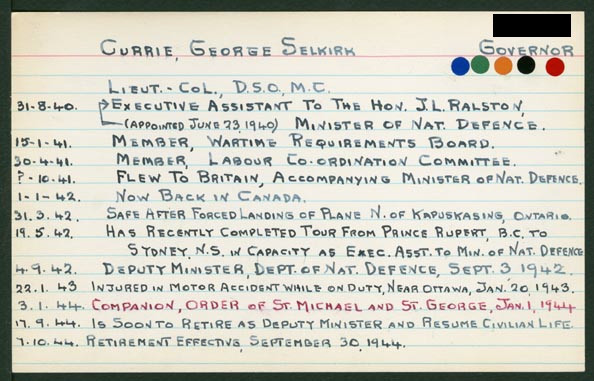 CURRIE, GEORGE SELKIRK GOVERNOR
LIEUT.-COL., D.S.O., M.C.
31-8-40. EXECUTIVE ASSISTANT TO THE HON. J.L. RALSTON,
(APPOINTED JUNE 23, 1940) MINISTER OF NAT. DEFENCE.
15-1-41. MEMBER, WARTIME REQUIREMENTS BOARD.
30-4-41. MEMBER, LABOUR CO-ORDINATION COMMITTEE.
?-10-41. FLEW TO BRITAIN, ACCOMPANYING MINISTER OF NAT. DEFENCE.
1-1-42. NOW BACK IN CANADA.
31.3.42. SAFE AFTER FORCED LANDING OF PLANE N. OF KAPUSKASING, ONTARIO.
19.5.42. HAS RECENTLY COMPLETED TOUR FROM PRINCE RUPERT, B.C. TO
SYDNEY, N.S. IN CAPACITY AS EXEC. ASST. TO MIN. OF NAT. DEFENCE
4.9.42. DEPUTY MINISTER, DEPT. OF NAT. DEFENCE, SEPT. 3, 1942.
22.1.43 INJURED IN MOTOR ACCIDENT WHILE ON DUTY, NEAR OTTAWA, JAN. 20, 1943.
3.1.44. COMPANION, ORDER OF ST. MICHAEL AND ST. GEORGE, JAN. 1, 1944
17.9.44. IS SOON TO RETIRE AS DEPUTY MINISTER AND RESUME CIVILIAN LIFE.
7.10.44. RETIREMENT EFFECTIVE, SEPTEMBER 30, 1944.